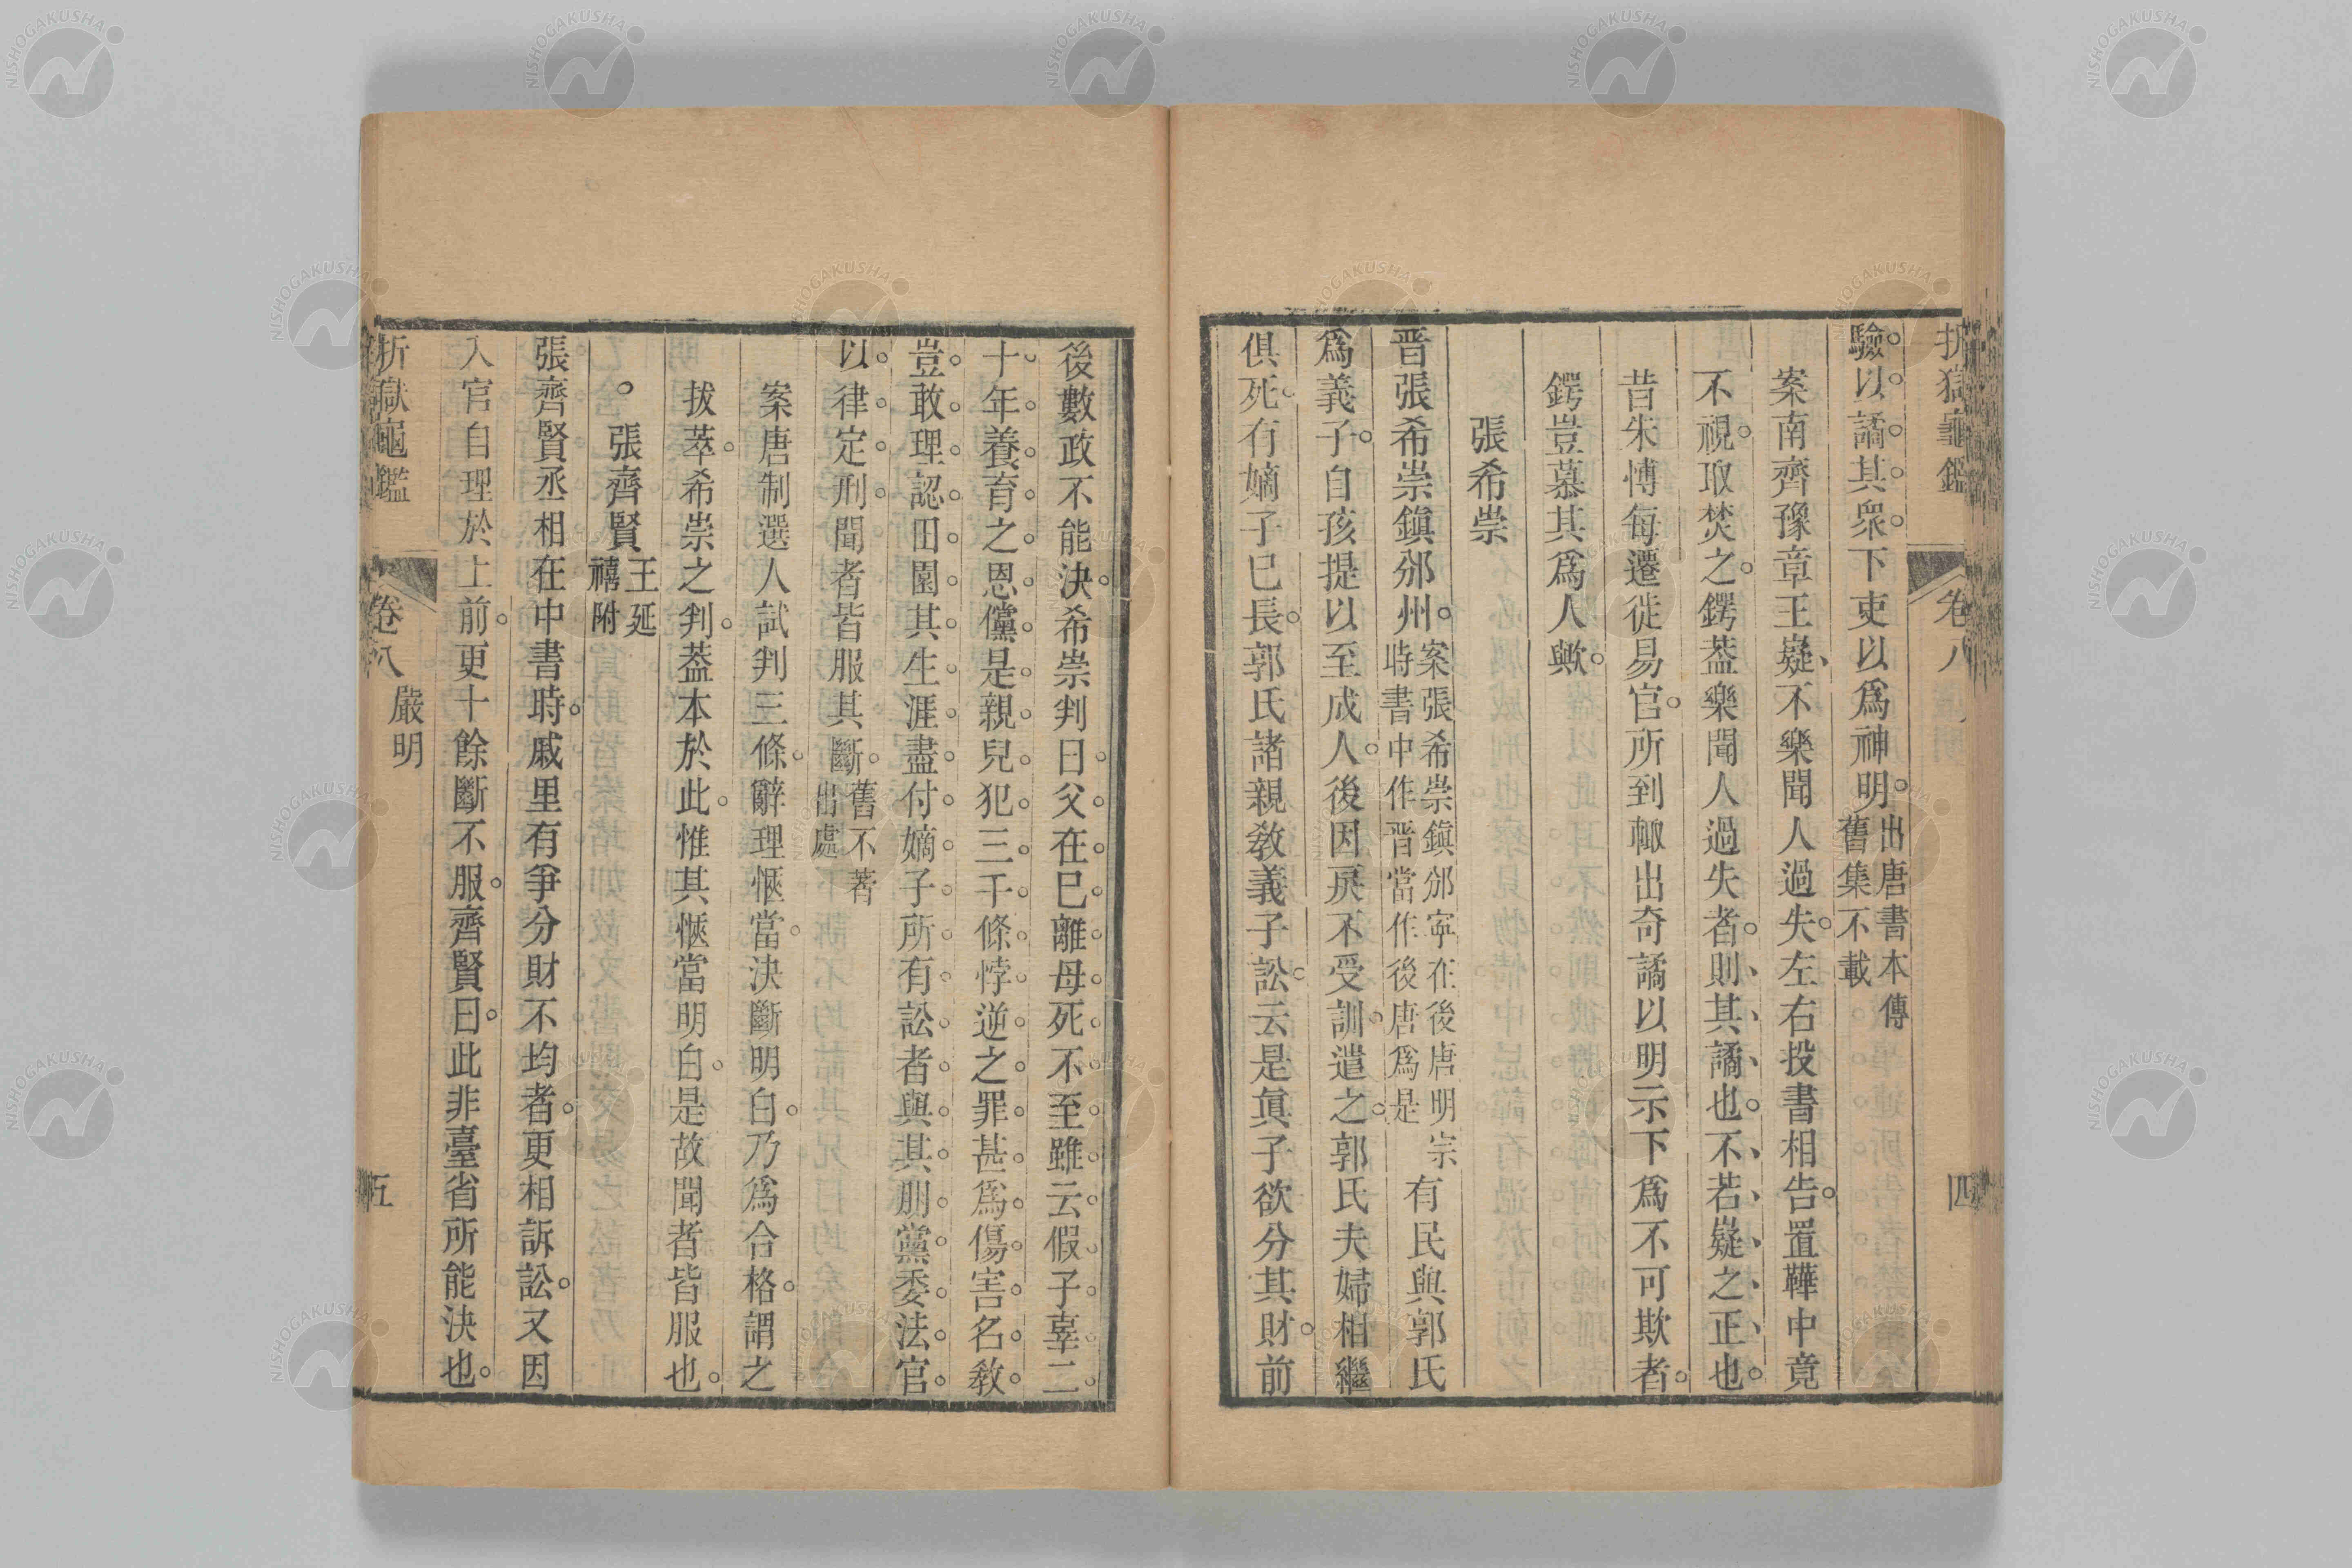 折獄龜鑑 卷八 四
驗以譎其衆下吏以爲神明出唐書本傳舊集不載
案南齊豫章王嶷不樂聞人過失左右投書相告置鞾中竟
不視取焚之鍔葢樂聞人過失者則其譎也不若嶷之正也
昔朱博每遷徙易官所到輒出奇譎以明示下爲不可欺者
鍔豈慕其爲人歟
張希崇
晋張希崇鎭邠州案張希崇鎭邠寜在後唐明宗時書中作晋當作後唐爲是有民與郭氏
爲義子自孩提以至成人後因戾不受訓遣之郭氏夫婦相繼
俱死有嫡子巳長郭氏諸親敎義子訟云是眞子欲分其財前
後數政不能決希崇判曰父在巳離母死不至雖云假子辜二
十年養育之恩儻是親兒犯三千條悖逆之罪甚爲傷害名敎
豈敢理認田園其生涯盡付嫡子所有訟者與其朋黨委法官
以律定刑聞者皆服其斷舊不著出處
案唐制選人試判三條辭理愜當決斷明白乃爲合格謂之
拔萃希崇之判葢本於此惟其愜當明白是故聞者皆服也
張齊賢王延禧附
張齊賢丞相在中書時戚里有爭分財不均者更相訴訟又因
入宮自理於上前更十餘斷不服齊賢曰此非臺省所能決也
折獄龜鑑 卷八 嚴明 五
NISHOGAKUSHA